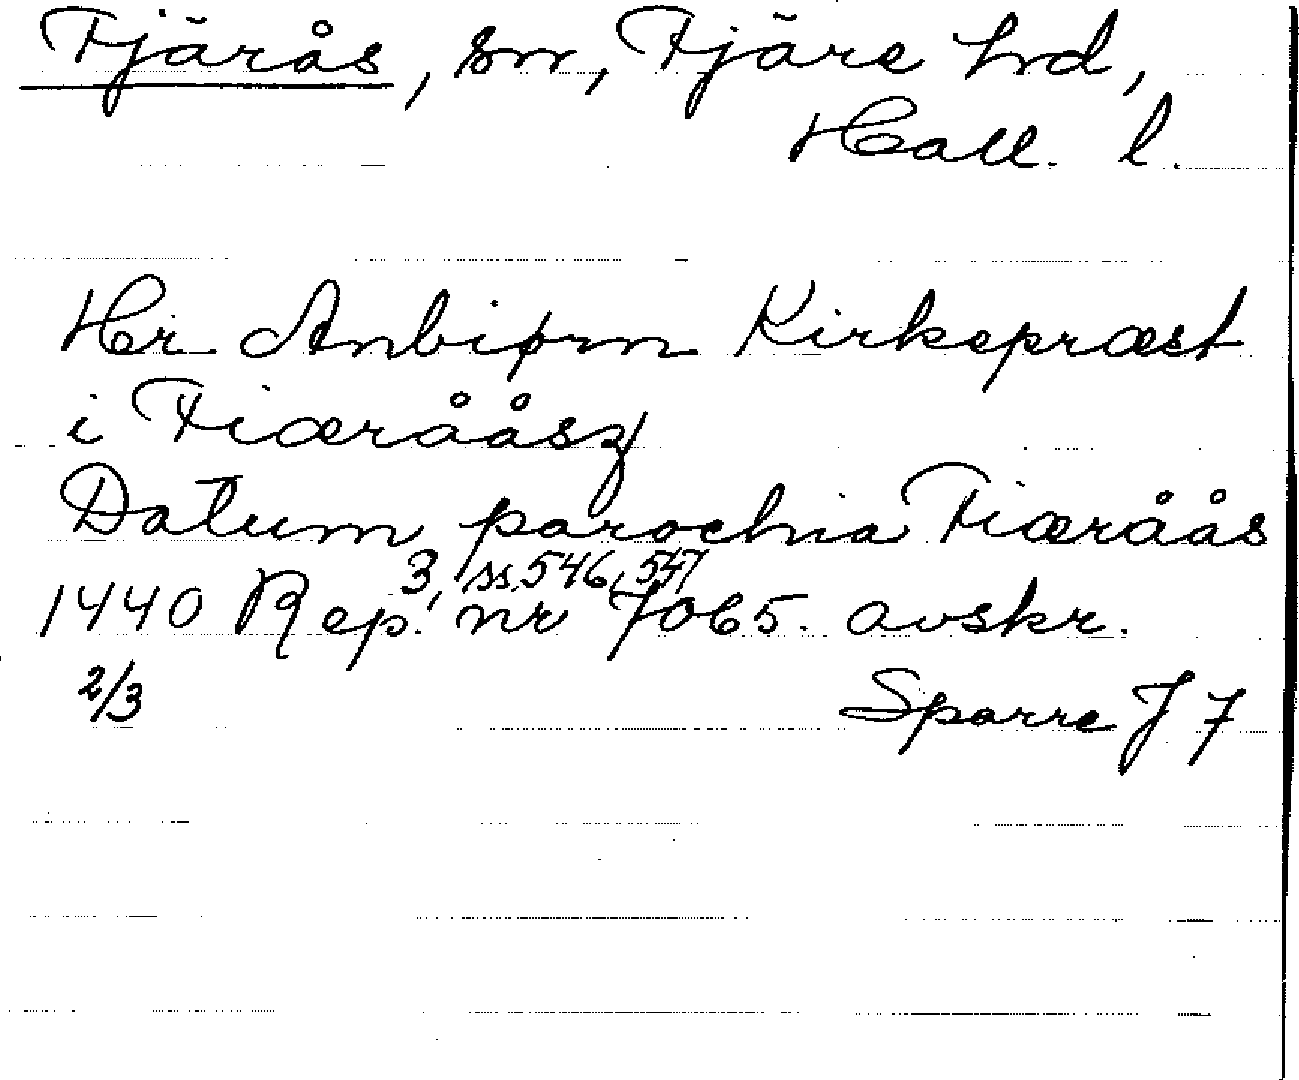 Fjärås, sn, Fjäre hd,
Hall. l.
Hr Anbiørn Kirkepræst
i Fiærååsz
Datum parochia Fiæråås
1440 Rep. 3, ss. 546, 547, nr 7065. avskr.
2/3 Sparre J 7